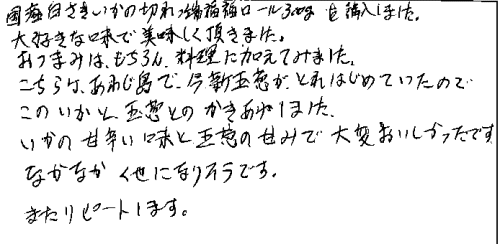 国産白さきいかの切れっ端福福ロール300g を購入しました。
大好きな味で美味しく頂きました。
おつまみは、もちろん、料理に加えてみました。
こちらは、あわじ島で、今新玉葱が、とれはじめていたので
このいかと、玉葱とのかきあげしました。
いかの甘辛い味と玉葱の甘みで大変おいしかったです
なかなかくせになりそうです。
またリピートします。